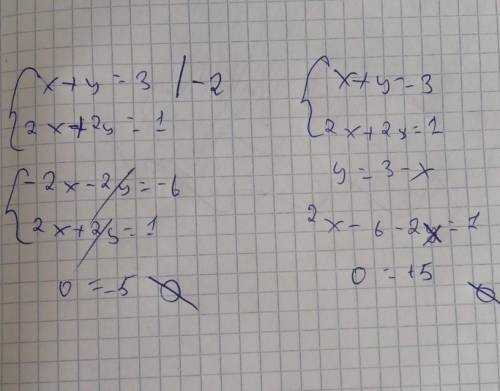 x+y=3 |-2
2x+2y=1
-2x-2y=-6
2x+2y=1
0=-5 Ø
x+y=3
2x+2y=1
y=3-x
2x-6-2x=1
0=+5
Ø